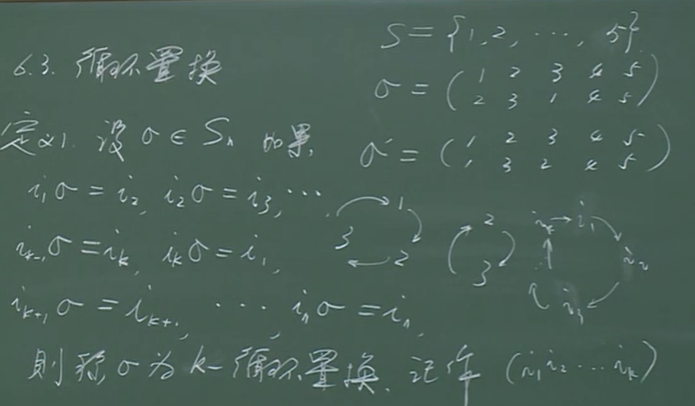 6.3. 循环置换
定义1. 设 σ ∈ Sn 如果,
i₁σ = i₂, i₂σ = i₃, ⋯,
iₖ₋₁σ = iₖ, iₖσ = i₁,
iₖ₊₁σ = iₖ₊₁, ⋯, iₙσ = iₙ,
则称 σ 为 k-循环置换, 记作 (i₁i₂⋯iₖ)
S = {1, 2, ⋯, 5}
σ = (1 2 3 4 5
2 3 1 4 5)
σ = (1 2 3 4 5
1 3 2 4 5)
1
3 2
2
3
iₖ i₁
i₂
i₃